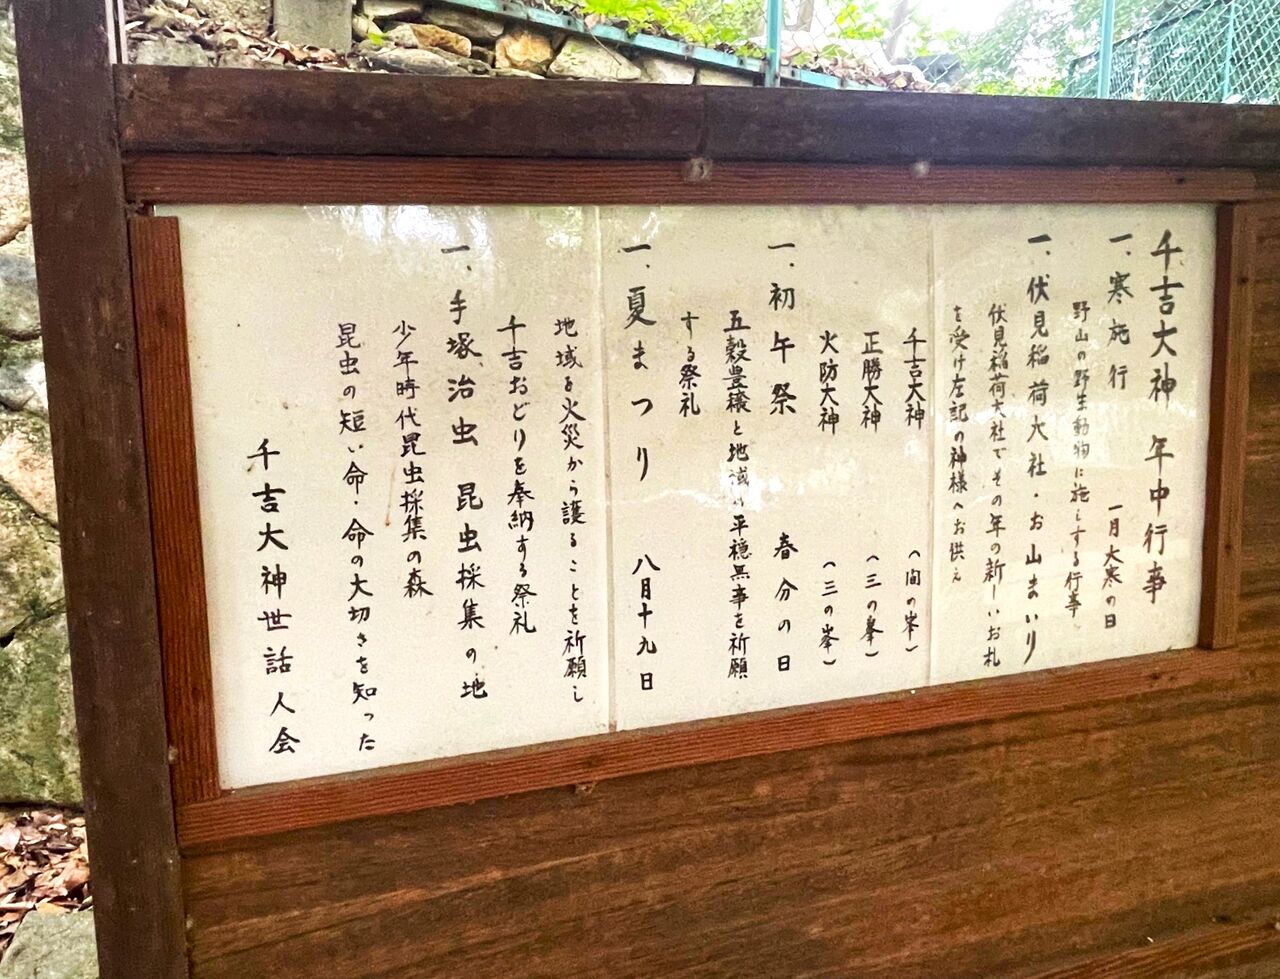 千吉大神　年中行事
一、寒施行　一月大寒の日
野山の野生動物に施しする行事
一、伏見稲荷大社・お山まいり
伏見稲荷大社でその年の新しいお札
を受け左記の神様へお供え
千吉大神　（間の峯）
正勝大神　（三の峯）
火防大神　（三の峯）
一、初午祭　春分の日
五穀豊穣と地域の平穏無事を祈願
する祭礼
一、夏まつり　八月十九日
地域を火災から護ることを祈願し
千吉おどりを奉納する祭礼
一、手塚治虫　昆虫採集の地
少年時代昆虫採集の森
昆虫の短い命・命の大切さを知った
千吉大神世話人会